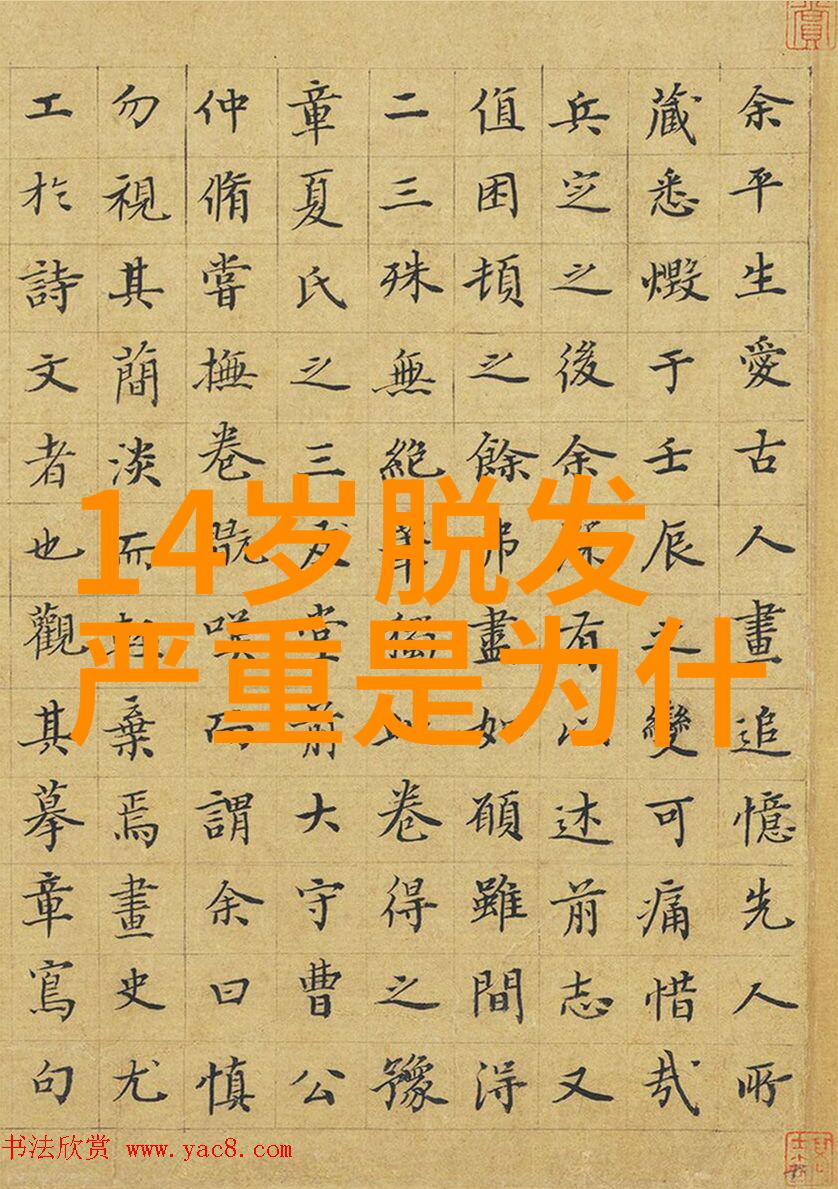 余平生愛古人畫追憶先人所
藏悉燬于壬辰之變可痛惜哉
兵定之後余深有以述前志又
值困頓之餘弗盡如願雖間得
二三殊無絕筆獨此卷得之豫
章夏氏之三及堂前大守曹公
仲脩嘗撫卷咲而謂余曰慎
勿視其簡淡而輕棄焉畫史尤
工於詩文者也觀其摹章寫句
14岁脱发
严重是为什
书法欣赏 www.yac8.com